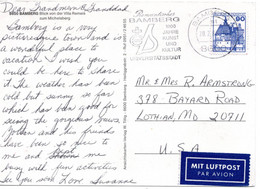 Dear Grandmom & Granddad
8600 BAMBERG Blick von der Villa Remeis
zum Michelsberg
Bamberg is a very
picturesque town and is
a wonderful place to
vacation. I wish you
could be here to share
it. The weather has been
cold but sunny so far
which has been good for
seeing the gorgeous
Mother and his friend
have been so nice to
me and keep me
busy with fun activities
See you soon! Love Susanne
BAMBERG
1000
JAHRE
KUNST
UND
KULTUR
90
Mr & Mrs R. Armstrong
378 Bayard Road
Lothian, MD 20711
U.S.A
MIT LUFTPOST
PAR AVION